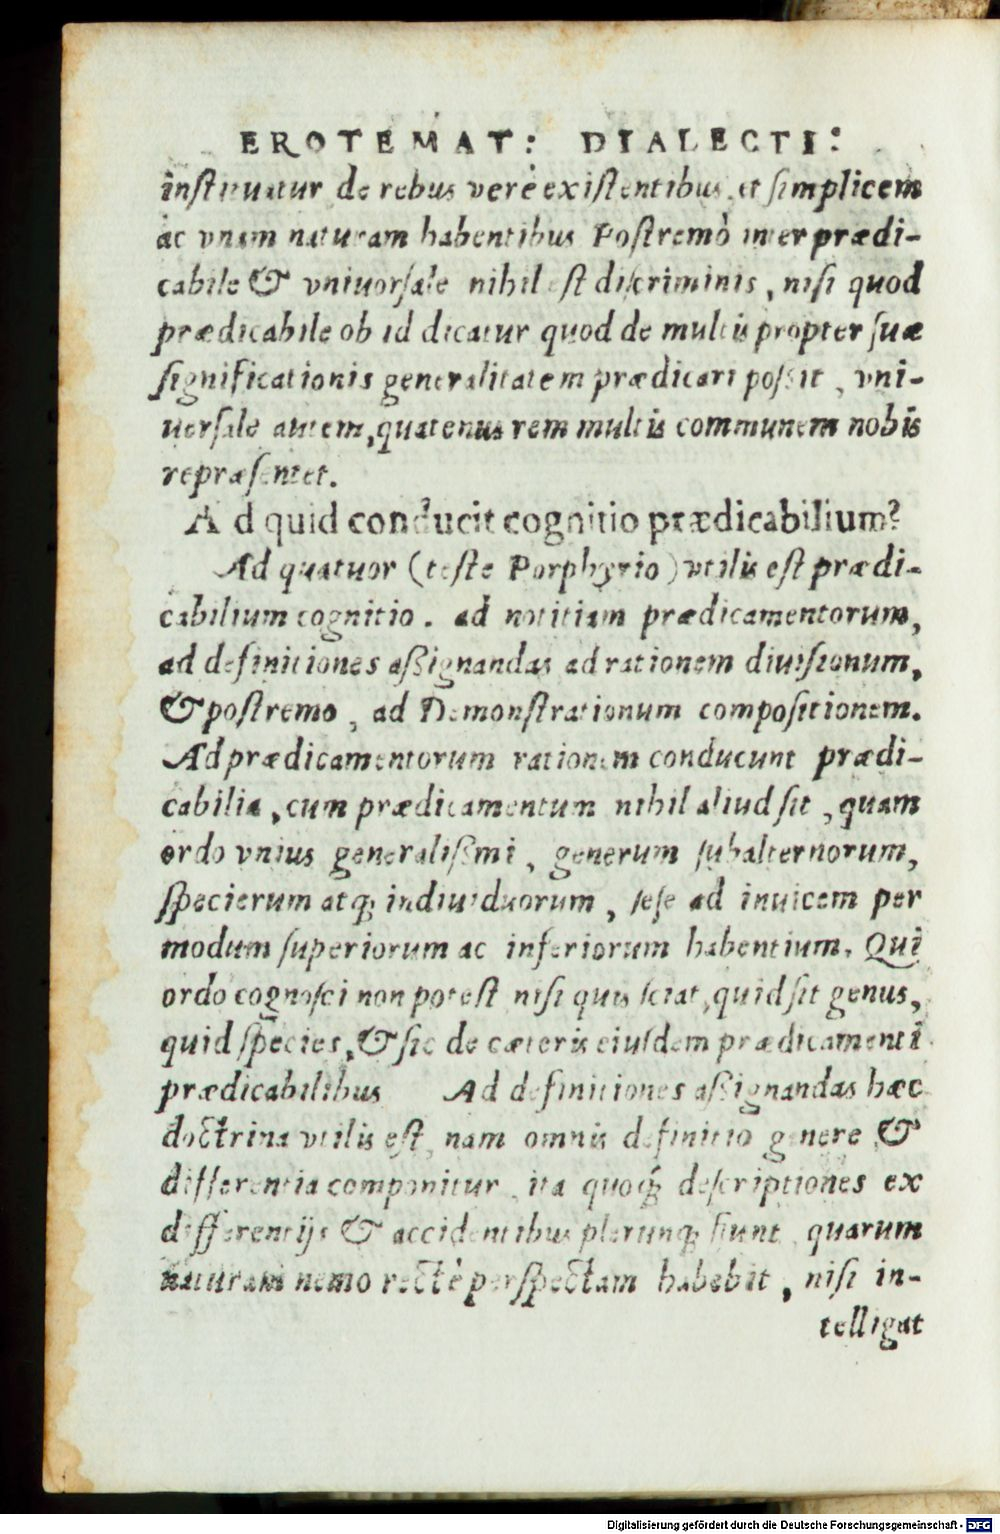 EROTEMAT: DIALECTI:
inſtituatur de rebus verè exiſtentibus, et ſimplicem
ac vnam naturam habentibus Poſtremò inter prædi-
cabile & vniuerſale nihil eſt diſcriminis, niſi quod
prædicabile ob id dicatur quod de multis propter ſuæ
ſignificationis generalitatem prædicari poſsit, vni-
uerſale autem, quatenus rem multis communem nobis
repræſentet.
Ad quid conducit cognitio prædicabilium?
Ad quatuor (teſte Porphyrio) vtilis eſt prædi-
cabilium cognitio. ad notitiam prædicamentorum,
ad definitiones aßignandas ad rationem diuiſionum,
& poſtremo, ad Demonſtrationum compoſitionem.
Ad prædicamentorum rationem conducunt prædi-
cabilia, cum prædicamentum nihil aliud ſit, quam
ordo vnius generalißimi, generum ſubalternorum,
ſpecierum atq; indiuiduorum, ſeſe ad inuicem per
modum ſuperiorum ac inferiorum habentium. Qui
ordo cognoſci non poteſt niſi quis ſciat, quid ſit genus,
quid ſpecies, & ſic de cæteris eiuſdem prædicamenti
prædicabilibus Ad definitiones aßignandas hæc
doctrina vtilis eſt, nam omnis definitio genere &
differentia componitur, ita quoq; deſcriptiones ex
differentijs & accidentibus plerunq; fiunt, quarum
naturam nemo rectè perſpectam habebit, niſi in-
telligat
Digitalisierung gefördert durch die Deutsche Forschungsgemeinschaft - DFG